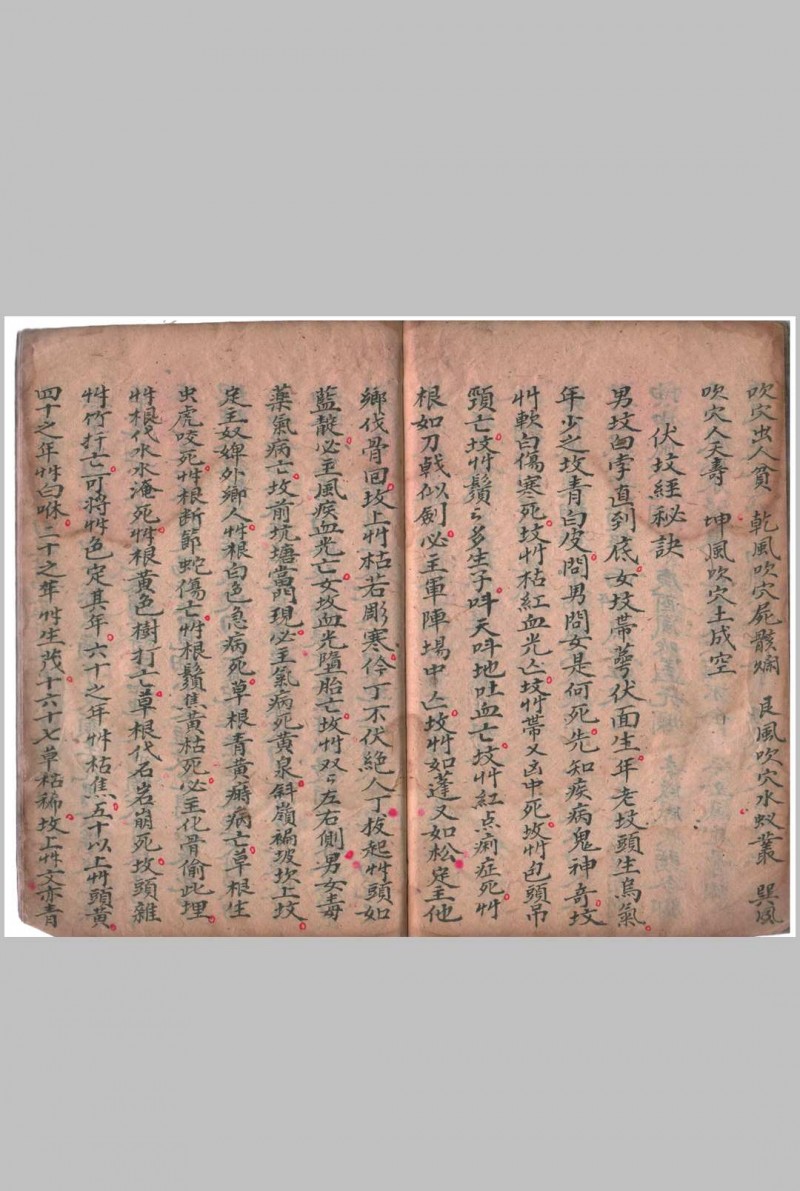 吹穴虫人貧　乾風吹穴屍骸爛　艮風吹穴水蚁叢　巽風
吹穴人夭壽　坤風吹穴土成空
伏坟經秘訣
男坟囟孛直到底女坟帶萼伏面生年老坟頭生烏氣
年少之坟青白皮問男問女是何死先知疾病鬼神奇坟
艸軟白傷寒死坟艸枯紅血光亡坟艸帶乂凶中死坟艸包頭吊
頸亡坟艸鬚々多生子呌天呌地吐血亡坟艸紅点痢症死艸
根如刀戟似劍必主軍陣場中亡坟艸如蓬又如松定主他
鄉伐骨回坟上艸枯若彫寒伶丁不伏絕人丁拔起艸頭如
藍靛必主風疾血光亡女坟血光墮胎亡坟艸双々左右側男女毒
藥氣病亡坟前坑塘當門現必主氣病死黃泉斜嶺褊坡坎上坟
定主奴婢外鄉人艸根白色急病死草根青黃癆病亡草根生
虫虎咬死艸根断節蛇傷亡艸根鬚焦黃枯死必主化骨偷此埋
艸根伐水水淹死艸根黃色樹打亡草根代石岩崩死坟頭雜
艸竹扞亡可將艸色定其年六十之年艸枯焦五十以上艸頭黃
四十之年艸白咻二十之年艸生茂十六十七草枯稀坟上艸文赤青